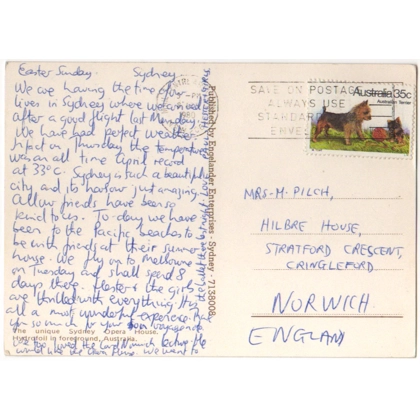 Easter Sunday. Sydney
We are having the time of our
lives in Sydney where we arrived
after a good flight last Monday.
We have had perfect weather
in fact on Thursday the temperature
was an all time April record
at 33°C. Sydney is such a beautiful
city and its harbour just amazing.
All our friends have been so
kind to us. To-day we have
been to the Pacific beaches to
be with friends at their summer
house. We fly on to Melbourne
on Tuesday and shall spend 8
days there. & the girls
are thrilled with everything. It is
all a most wonderful experience. Thank
you so much for your bon voyage
The unique Sydney Opera House.
Hydrofoil in foreground, Australia.
We too loved the Lord Norwich lecture.
would like the Opera House. We went to
Published by Engelander Enterprises - Sydney - 7138008
SAVE ON POSTAGE
ALWAYS USE
STANDARD
ENVEL
Australia 35c
Australian Terrier
MRS. M. PILCH,
HILBRE HOUSE,
STRATFORD CRESCENT,
CRINGLEFORD
NORWICH.
ENGLAND